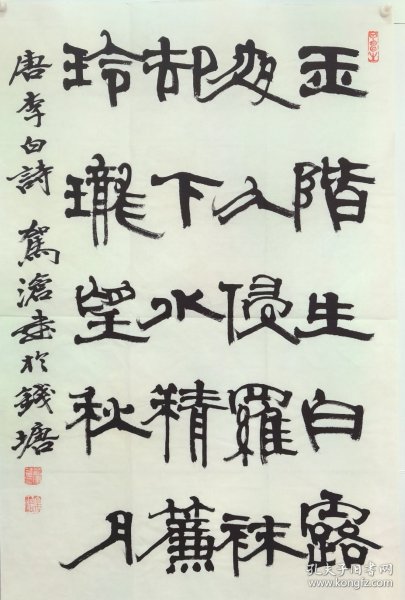 玉階生白露
夜久侵羅袜
却下水精簾
玲瓏望秋月
唐李白詩 駕滄書於錢塘
孔夫子旧书网
www.kongfz.com